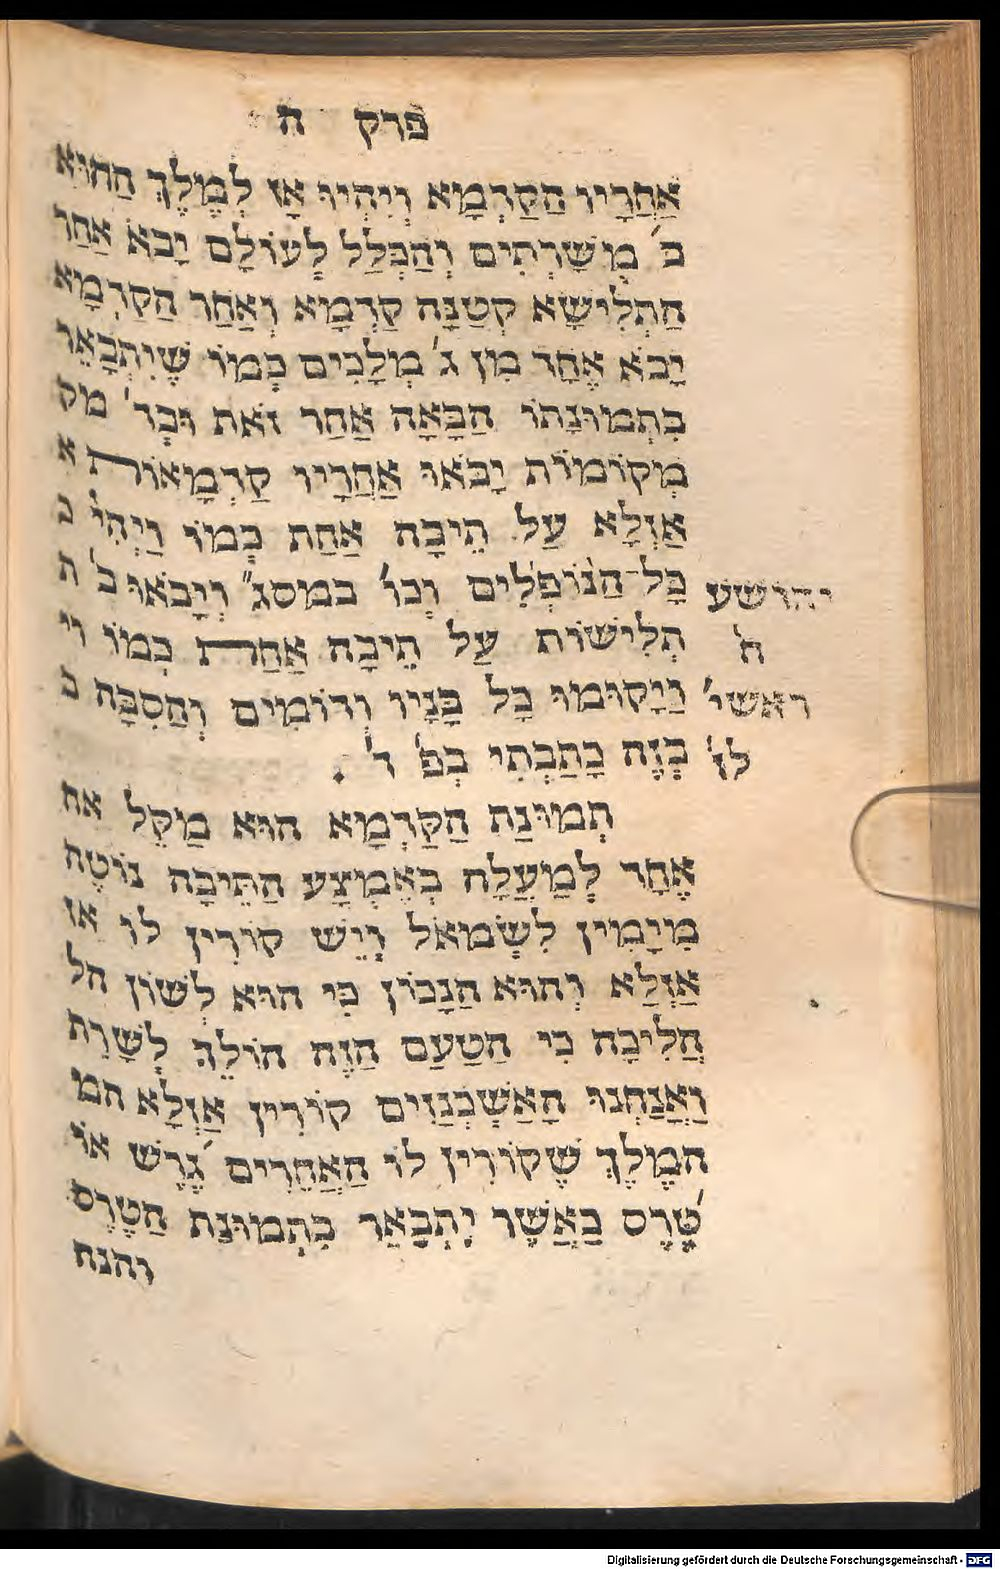 פרק ה
אַחֲרָיו הַקַדְמָא וְיִהְיוּ אָז לְמֶלֶךְ הַהוּא
ב' מְשָׁרְתִים וְהַכְּלַל לְעוֹלָם יָבֹא אַחַר
הַתְּלִישָׁא קְטַנָּה קַדְמָא וְאַחַר הַקַדְמָא
יָבֹא אֶחָד מִן ג' מְלָכִים כְּמוֹ שֶׁיִתְבָּאֵר
בִּתְמוּנָתוֹ הַבָּאָה אַחַר זֹאת וּבְד' מק
מְקוֹמוֹת יָבֹאוּ אַחֲרָיו קַדְמָאוֹת א
אַזְלָא עַל תֵיבָה אַחַת כְּמוֹ וַיְהִי כ
כָּל־הַנּוֹפְלִים וְכוּ' במסג" וְיָבֹאוּ ב' ת
יהושע
תְלִישׁוֹת עַל תֵיבָה אַחַת כְּמוֹ וי
ח
וַיָקוּמוּ כָל בָּנָיו וְדוֹמִים וְהַסִבָּה כ
ראשי'
כָּזֶה כָתַבְתִּי בְּפ' ד'
לז'
תְמוּנַת הַקַדְמָא הוּא מַקֵל אח
אֶחָד לְמַעֲלָה בְּאֶמְצַע הַתֵּיבָה נוֹטֶה
מִיָמִין לִשְׂמֹאל וְיֵשׁ קוֹרִין לוֹ אז
אַזְלָא וְהוּא הַנָכוֹן כִּי הוּא לְשׁוֹן הל
הֲלִיכָה כִּי הַטַעַם הַזֶה הוֹלֵךְ לְשָׁרֵת
וַאֲנַחְנוּ הָאַשְׁכְּנַזִים קוֹרִין אַזְלָא המ
הַמֶלֶךְ שֶׁקוֹרִין לוֹ הָאֲחֵרִים גֵרֵשׁ אוֹ
טֶרֶס כַּאֲשֶׁר יִתְבָּאֵר בִּתְמוּנַת הַטֶרֶס
והנה
Digitalisierung gefördert durch die Deutsche Forschungsgemeinschaft - DFG